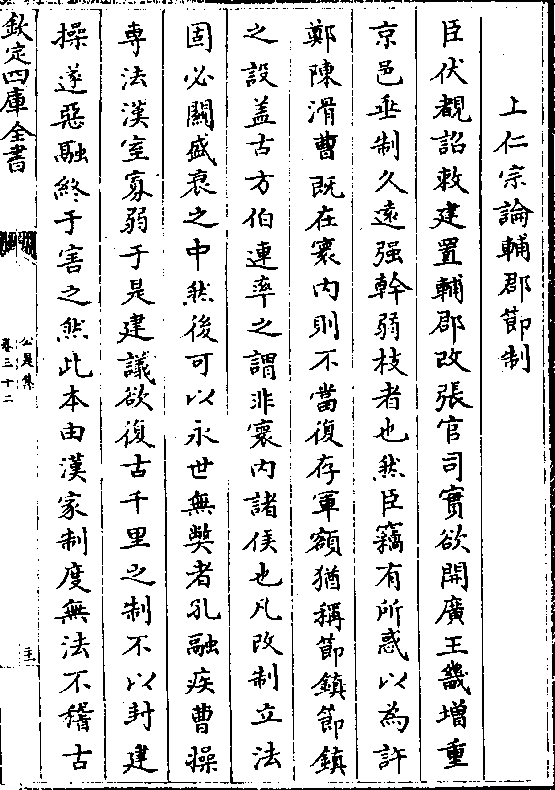 上仁宗論輔郡節制
臣伏覩詔敕建置輔郡改張官司實欲開廣王畿增重
京邑垂制久遠强幹弱枝者也然臣竊有所惑以為許
鄭陳滑曹既在寰内則不當復存軍額猶稱節鎮節鎮
之設盖古方伯連率之謂非寰内諸侯也凡改制立法
固必關盛衰之中然後可以永世無弊者孔融疾曹操
専法漢室寡弱于是建議欲復古千里之制不以封建
操遂惡融終于害之然此本由漢家制度無法不稽古
欽定四庫全書
公是集
卷三十二